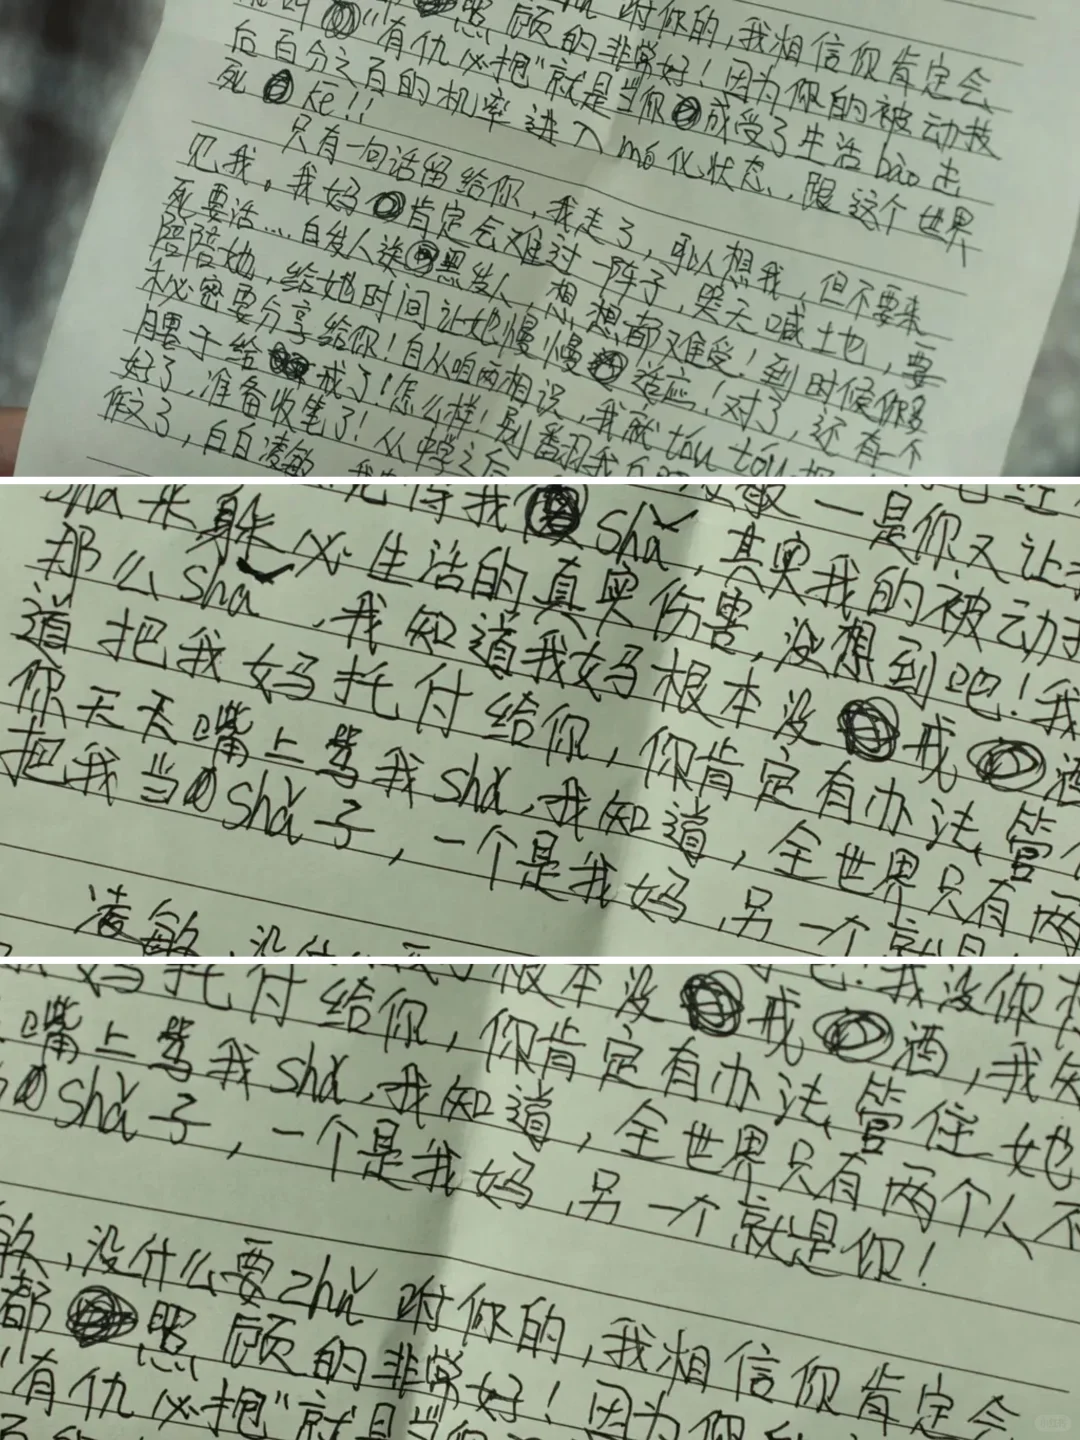 谢你的,我相信你肯定会
照顾的非常好!因为你的被动技
"有仇必抱"就是当你成受了生活bào走
后百分之百的机率进入mó化状态,跟这个世界
死kē!!
只有一句话留给你,我走了,可以想我,但不要来
见我。我妈肯定会难过一阵子,哭天喊土也,要
死要活...白发人送黑发人,想想都难受!到时候你多
陪陪她,给她时间让她慢慢适应!对了,还有一个
秘密要分享给你!自从咱两相识,我就tōu tōu把
月害子给戒了!怎么样!别番羽我
好了,准备收笔了!从中学之后
作文了,白白凌敏
sha来躲
记得我shǎ,
敏一是你又让
那么shǎ
心生活的真实伤害,没想到吧!我
其实我的被动
,我知道我妈根本没戒酒
道把我妈托付给你,你肯定有办法管
你天天嘴上骂我shǎ,我知道,全世界只有两
把我当shǎ子,一个是我妈,另一个就是
凌敏,没什么要
妈托付给你,根本没戒酒,我知
吧!我没你
你肯定有办法管住她
嘴上骂我shǎ,我知道,全世界只有两个人不
shǎ子,一个是我妈,另一个就是你!
敏,没什么要zhǔ咐你的,我相信你肯定会
都照顾的非常好!因为你
"有仇必抱"就是当你